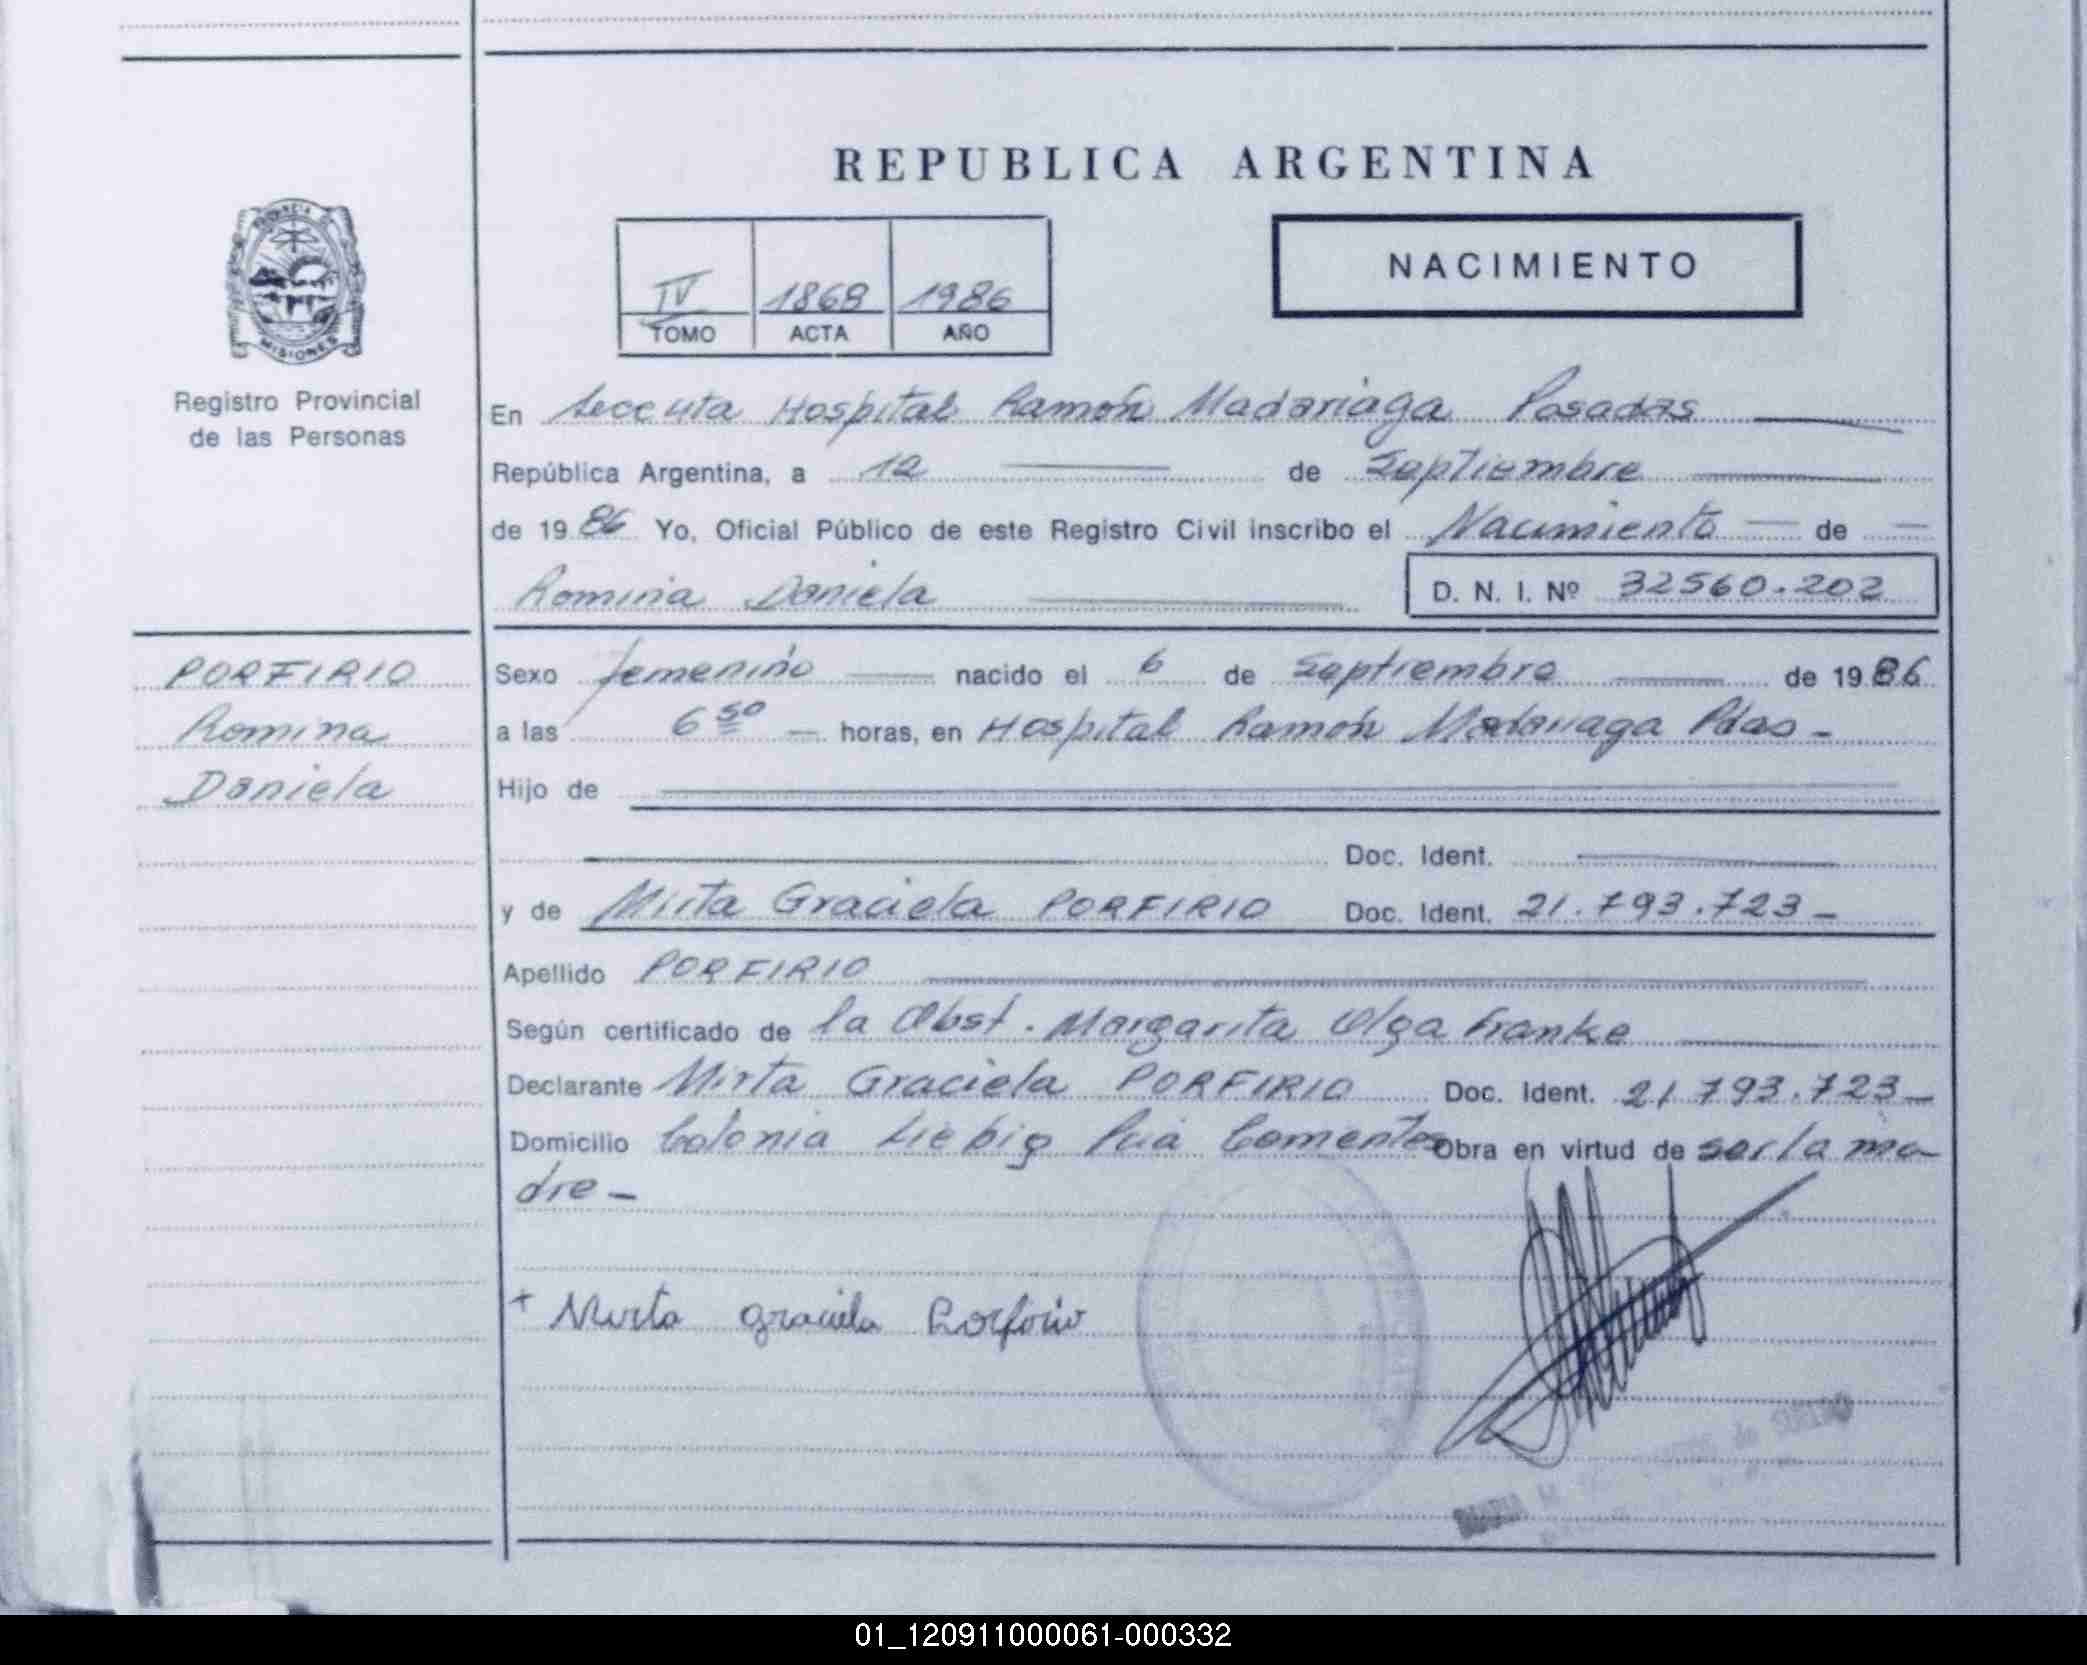 REPUBLICA ARGENTINA
PROVINCIA DE
MISIONES
Registro Provincial
de las Personas
IV 1868 1986
TOMO ACTA AÑO
NACIMIENTO
En Seccuta Hospital Ramón Madariaga Posadas
República Argentina, a 12 de Septiembre
de 1986 Yo, Oficial Público de este Registro Civil inscribo el Nacimiento de
Romina Daniela D. N. I. Nº 32560.202
PORFIRIO
Romina
Daniela
Sexo femenino nacido el 6 de Septiembre de 1986
a las 6 50 horas, en Hospital Ramón Madariaga Pdas -
Hijo de
Doc. Ident.
y de Mirta Graciela PORFIRIO Doc. Ident. 21.793.723-
Apellido PORFIRIO
Según certificado de la Obst. Margarita Olga Franke
Declarante Mirta Graciela PORFIRIO Doc. Ident. 21.793.723-
Domicilio Colonia Liebig Obra en virtud de ser la ma-
dre -
+ Mirta Graciela Porfirio
01_120911000061-000332